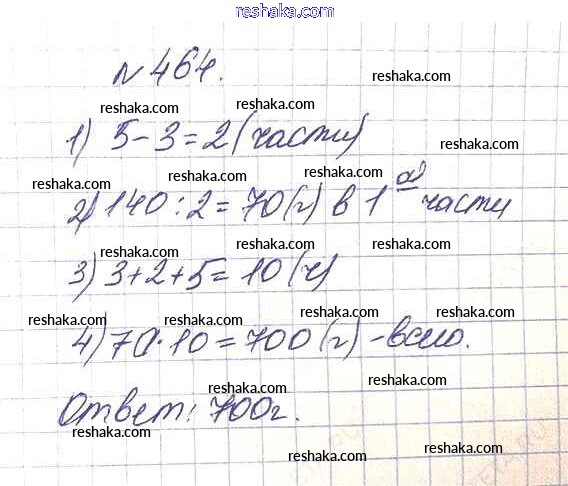 reshaka.com
№ 464.
reshaka.com
reshaka.com reshaka.com
1) 5 - 3 = 2 (части)
reshaka.com reshaka.com reshaka.com
2) 140 : 2 = 70 (г) в 1ой части
reshaka.com reshaka.com
3) 3 + 2 + 5 = 10 (ч)
reshaka.com reshaka.com reshaka.com
4) 70 · 10 = 700 (г) - всего.
reshaka.com reshaka.com
Ответ: 700г.
reshaka.com reshaka.com
reshaka.com